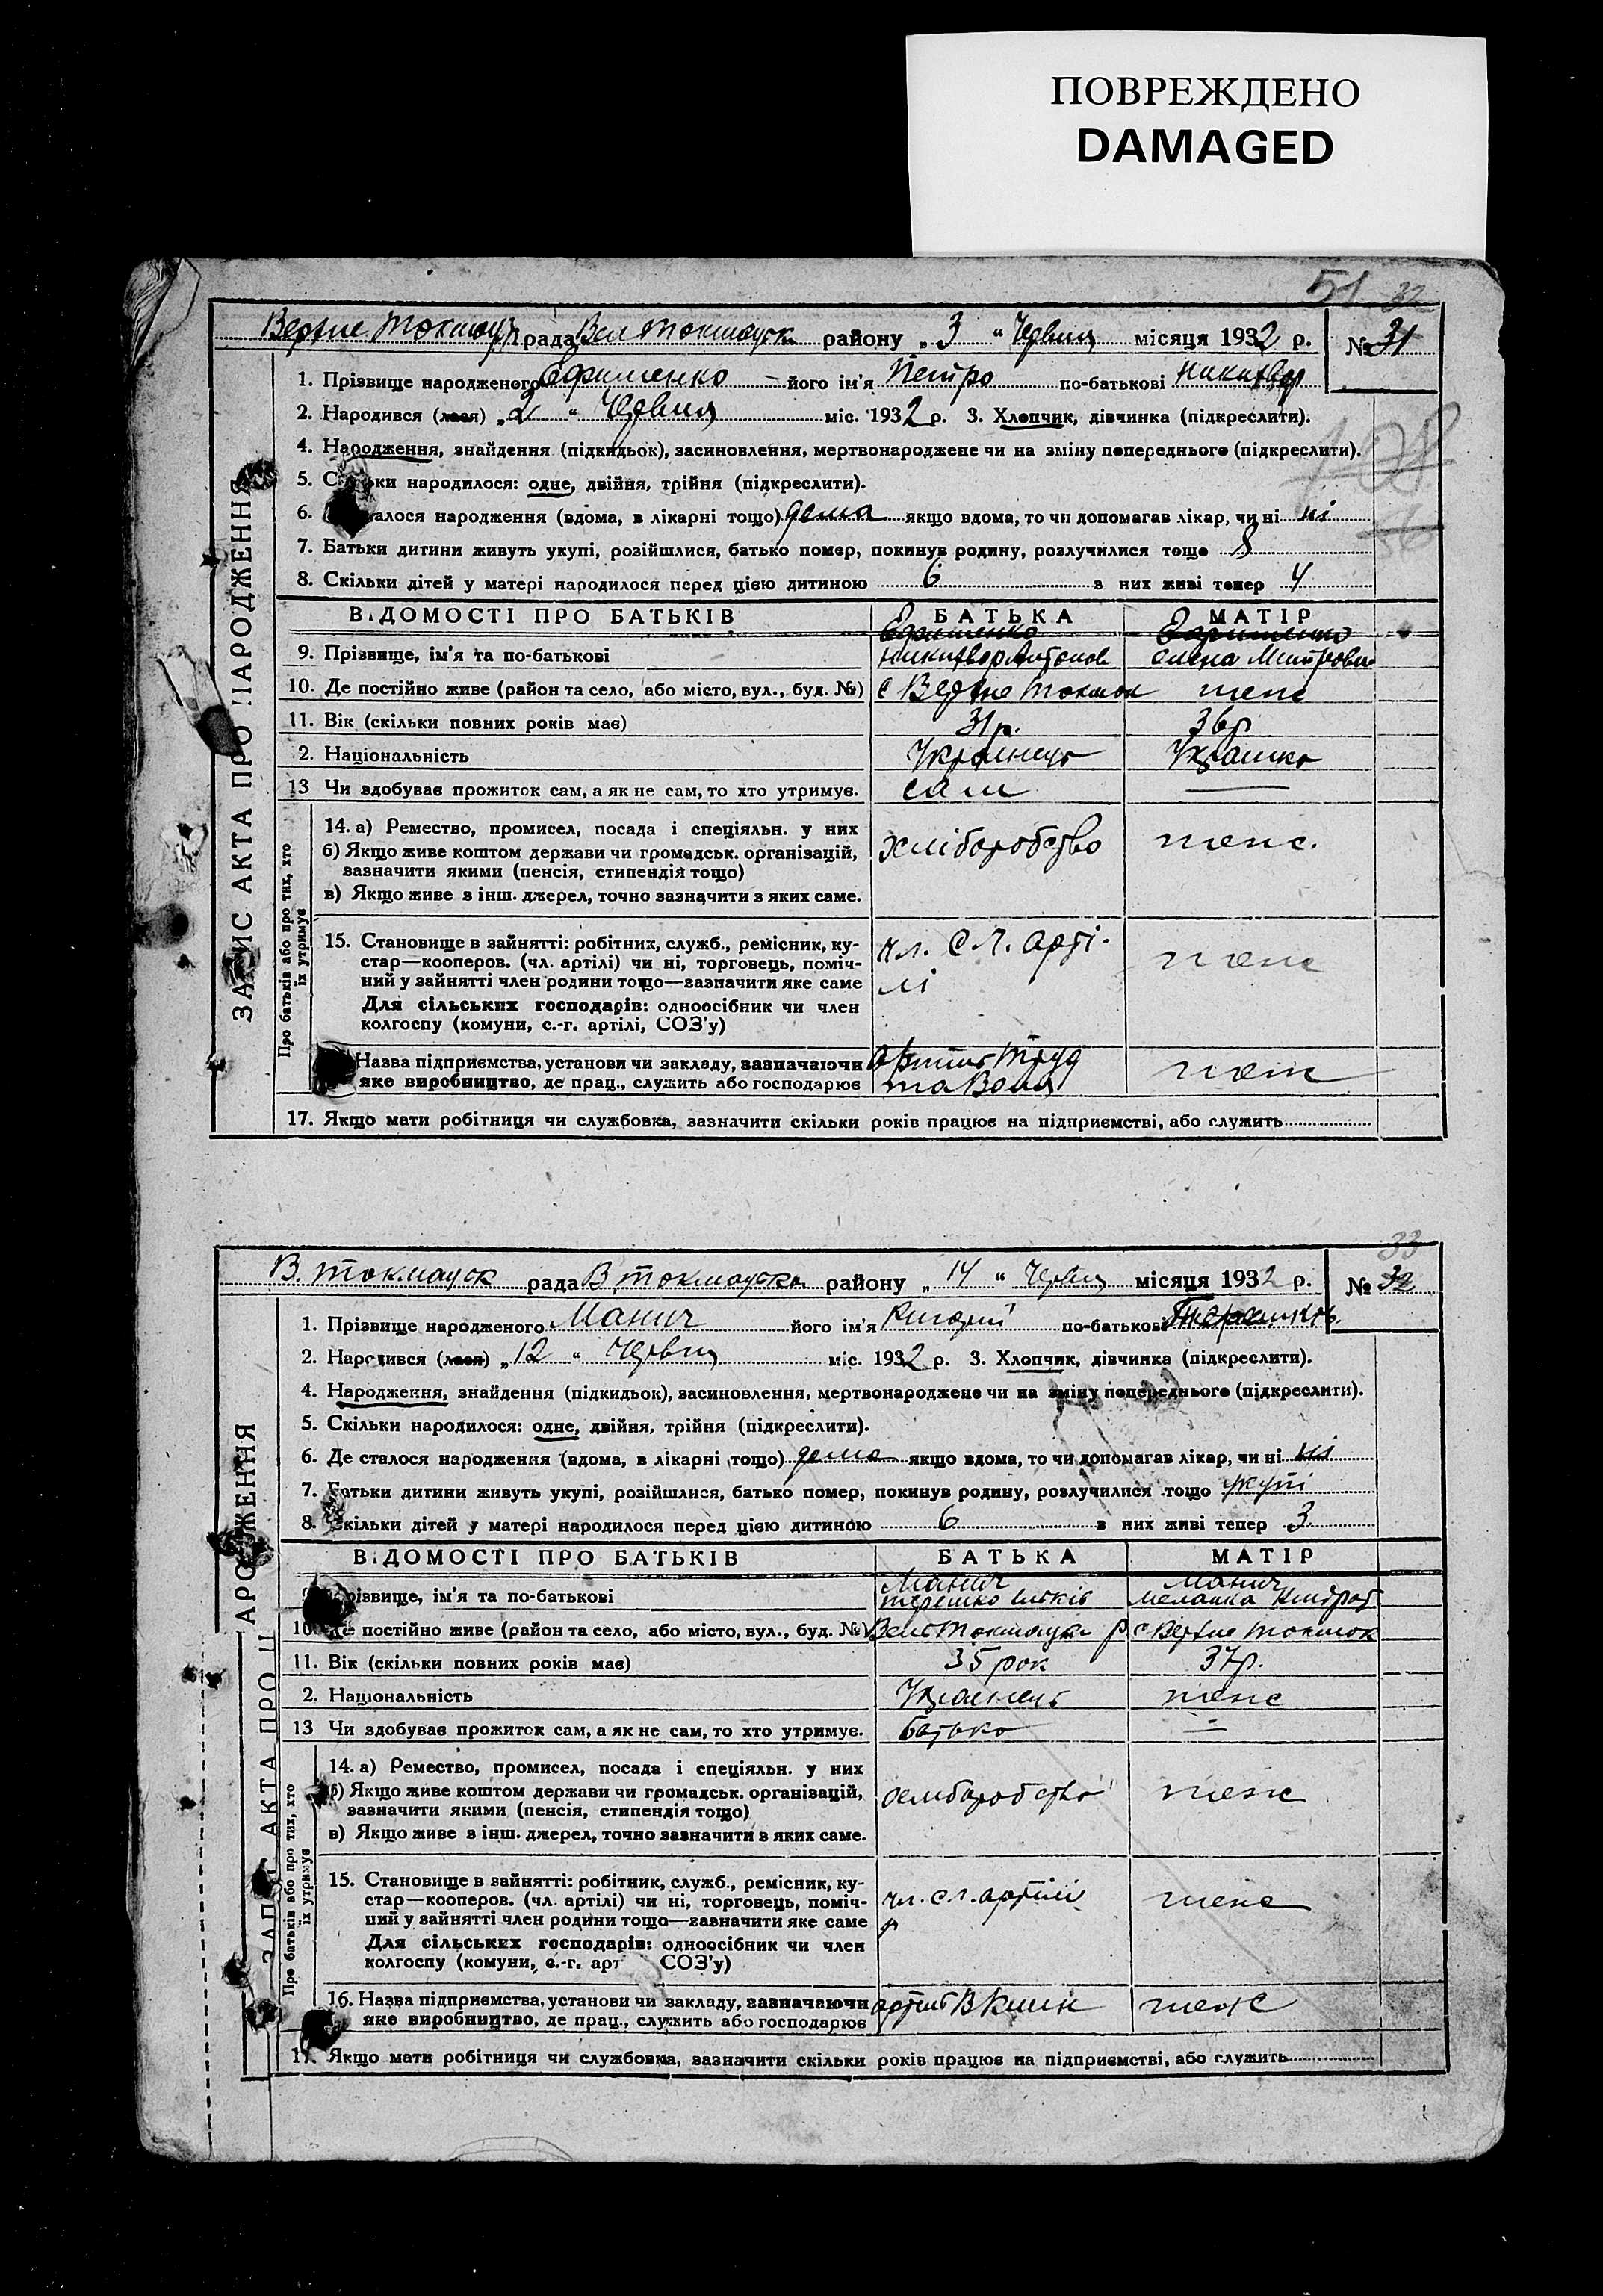 ПОВРЕЖДЕНО
DAMAGED
51 32
рада району „ 3 “ Червня місяця 1932 р. № 31
1. Прізвище народженого Ефименко його ім'я Петро по-батькові
2. Народився (лася) „ 2 “ Червня міс. 1932 р. 3. Хлопчик, дівчинка (підкреслити).
4. Народження, знайдення (підкидьок), засиновлення, мертвонароджене чи на зміну попереднього (підкреслити).
5. народилося: одне, двійня, трійня (підкреслити).
6. народження (вдома, в лікарні тощо) дома якщо вдома, то чи допомагав лікар, чи ні ні
7. Батьки дитини живуть укупі, розійшлися, батько помер, покинув родину, розлучилися тощо
8. Скільки дітей у матері народилося перед цією дитиною 6 з них живі тепер 4
ВІДОМОСТІ ПРО БАТЬКІВ БАТЬКА МАТІР
Ефименко Ефименко
9. Прізвище, ім'я та по-батькові
10. Де постійно живе (район та село, або місто, вул., буд. №) с Верхне Токмак теж
11. Вік (скільки повних років має) 31 р. 36 р
2. Національність Українець Українка
13 Чи здобуває прожиток сам, а як не сам, то хто утримує. сам —
14. а) Ремество, промисел, посада і спеціяльн. у них хліборобство теж.
б) Якщо живе коштом держави чи громадськ. організацій,
зазначити якими (пенсія, стипендія тощо)
в) Якщо живе з інш. джерел, точно зазначити з яких саме.
15. Становище в зайнятті: робітник, служб., ремісник, ку- чл. с. г. арті-
стар—кооперов. (чл. артілі) чи ні, торговець, поміч- теж
ний у зайнятті член родини тощо—зазначити яке саме лі
Для сільських господарів: одноосібник чи член
колгоспу (комуни, с.-г. артілі, СОЗ'у)
Назва підприємства, установи чи закладу, зазначаючи Труд
яке виробництво, де прац., служить або господарює та Воля теж
17. Якщо мати робітниця чи службовка, зазначити скільки років працює на підприємстві, або служить
ЗАПИС АКТА ПРО НАРОДЖЕННЯ
Про батьків або про тих, хто
їх утримує
33
В. Токмацк рада району „ 14 “ Червня місяця 1932 р. № 32
1. Прізвище народженого Манич його ім'я по-батькові
2. Народився (лася) „ 12 “ Червня міс. 1932 р. 3. Хлопчик, дівчинка (підкреслити).
4. Народження, знайдення (підкидьок), засиновлення, мертвонароджене чи на зміну попереднього (підкреслити).
5. Скільки народилося: одне, двійня, трійня (підкреслити).
6. Де сталося народження (вдома, в лікарні тощо) дома якщо вдома, то чи допомагав лікар, чи ні ні
7. Батьки дитини живуть укупі, розійшлися, батько помер, покинув родину, розлучилися тощо укупі
8. Скільки дітей у матері народилося перед цією дитиною 6 з них живі тепер 3
ВІДОМОСТІ ПРО БАТЬКІВ БАТЬКА МАТІР
Манич Манич
Прізвище, ім'я та по-батькові
10. Де постійно живе (район та село, або місто, вул., буд. №) с Верхне Токмак
11. Вік (скільки повних років має) 35 рок 37 р.
2. Національність Українець теж
13 Чи здобуває прожиток сам, а як не сам, то хто утримує. батько —
14. а) Ремество, промисел, посада і спеціяльн. у них
б) Якщо живе коштом держави чи громадськ. організацій, хліборобство теж
зазначити якими (пенсія, стипендія тощо)
в) Якщо живе з інш. джерел, точно зазначити з яких саме.
15. Становище в зайнятті: робітник, служб., ремісник, ку-
стар—кооперов. (чл. артілі) чи ні, торговець, поміч- чл. с. г. артілі теж
ний у зайнятті член родини тощо—зазначити яке саме
Для сільських господарів: одноосібник чи член
колгоспу (комуни, с.-г. арт СОЗ'у)
16. Назва підприємства, установи чи закладу, зазначаючи теж
яке виробництво, де прац., служить або господарює
17. Якщо мати робітниця чи службовка, зазначити скільки років працює на підприємстві, або служить
Про батьків або про тих, хто
їх утримує